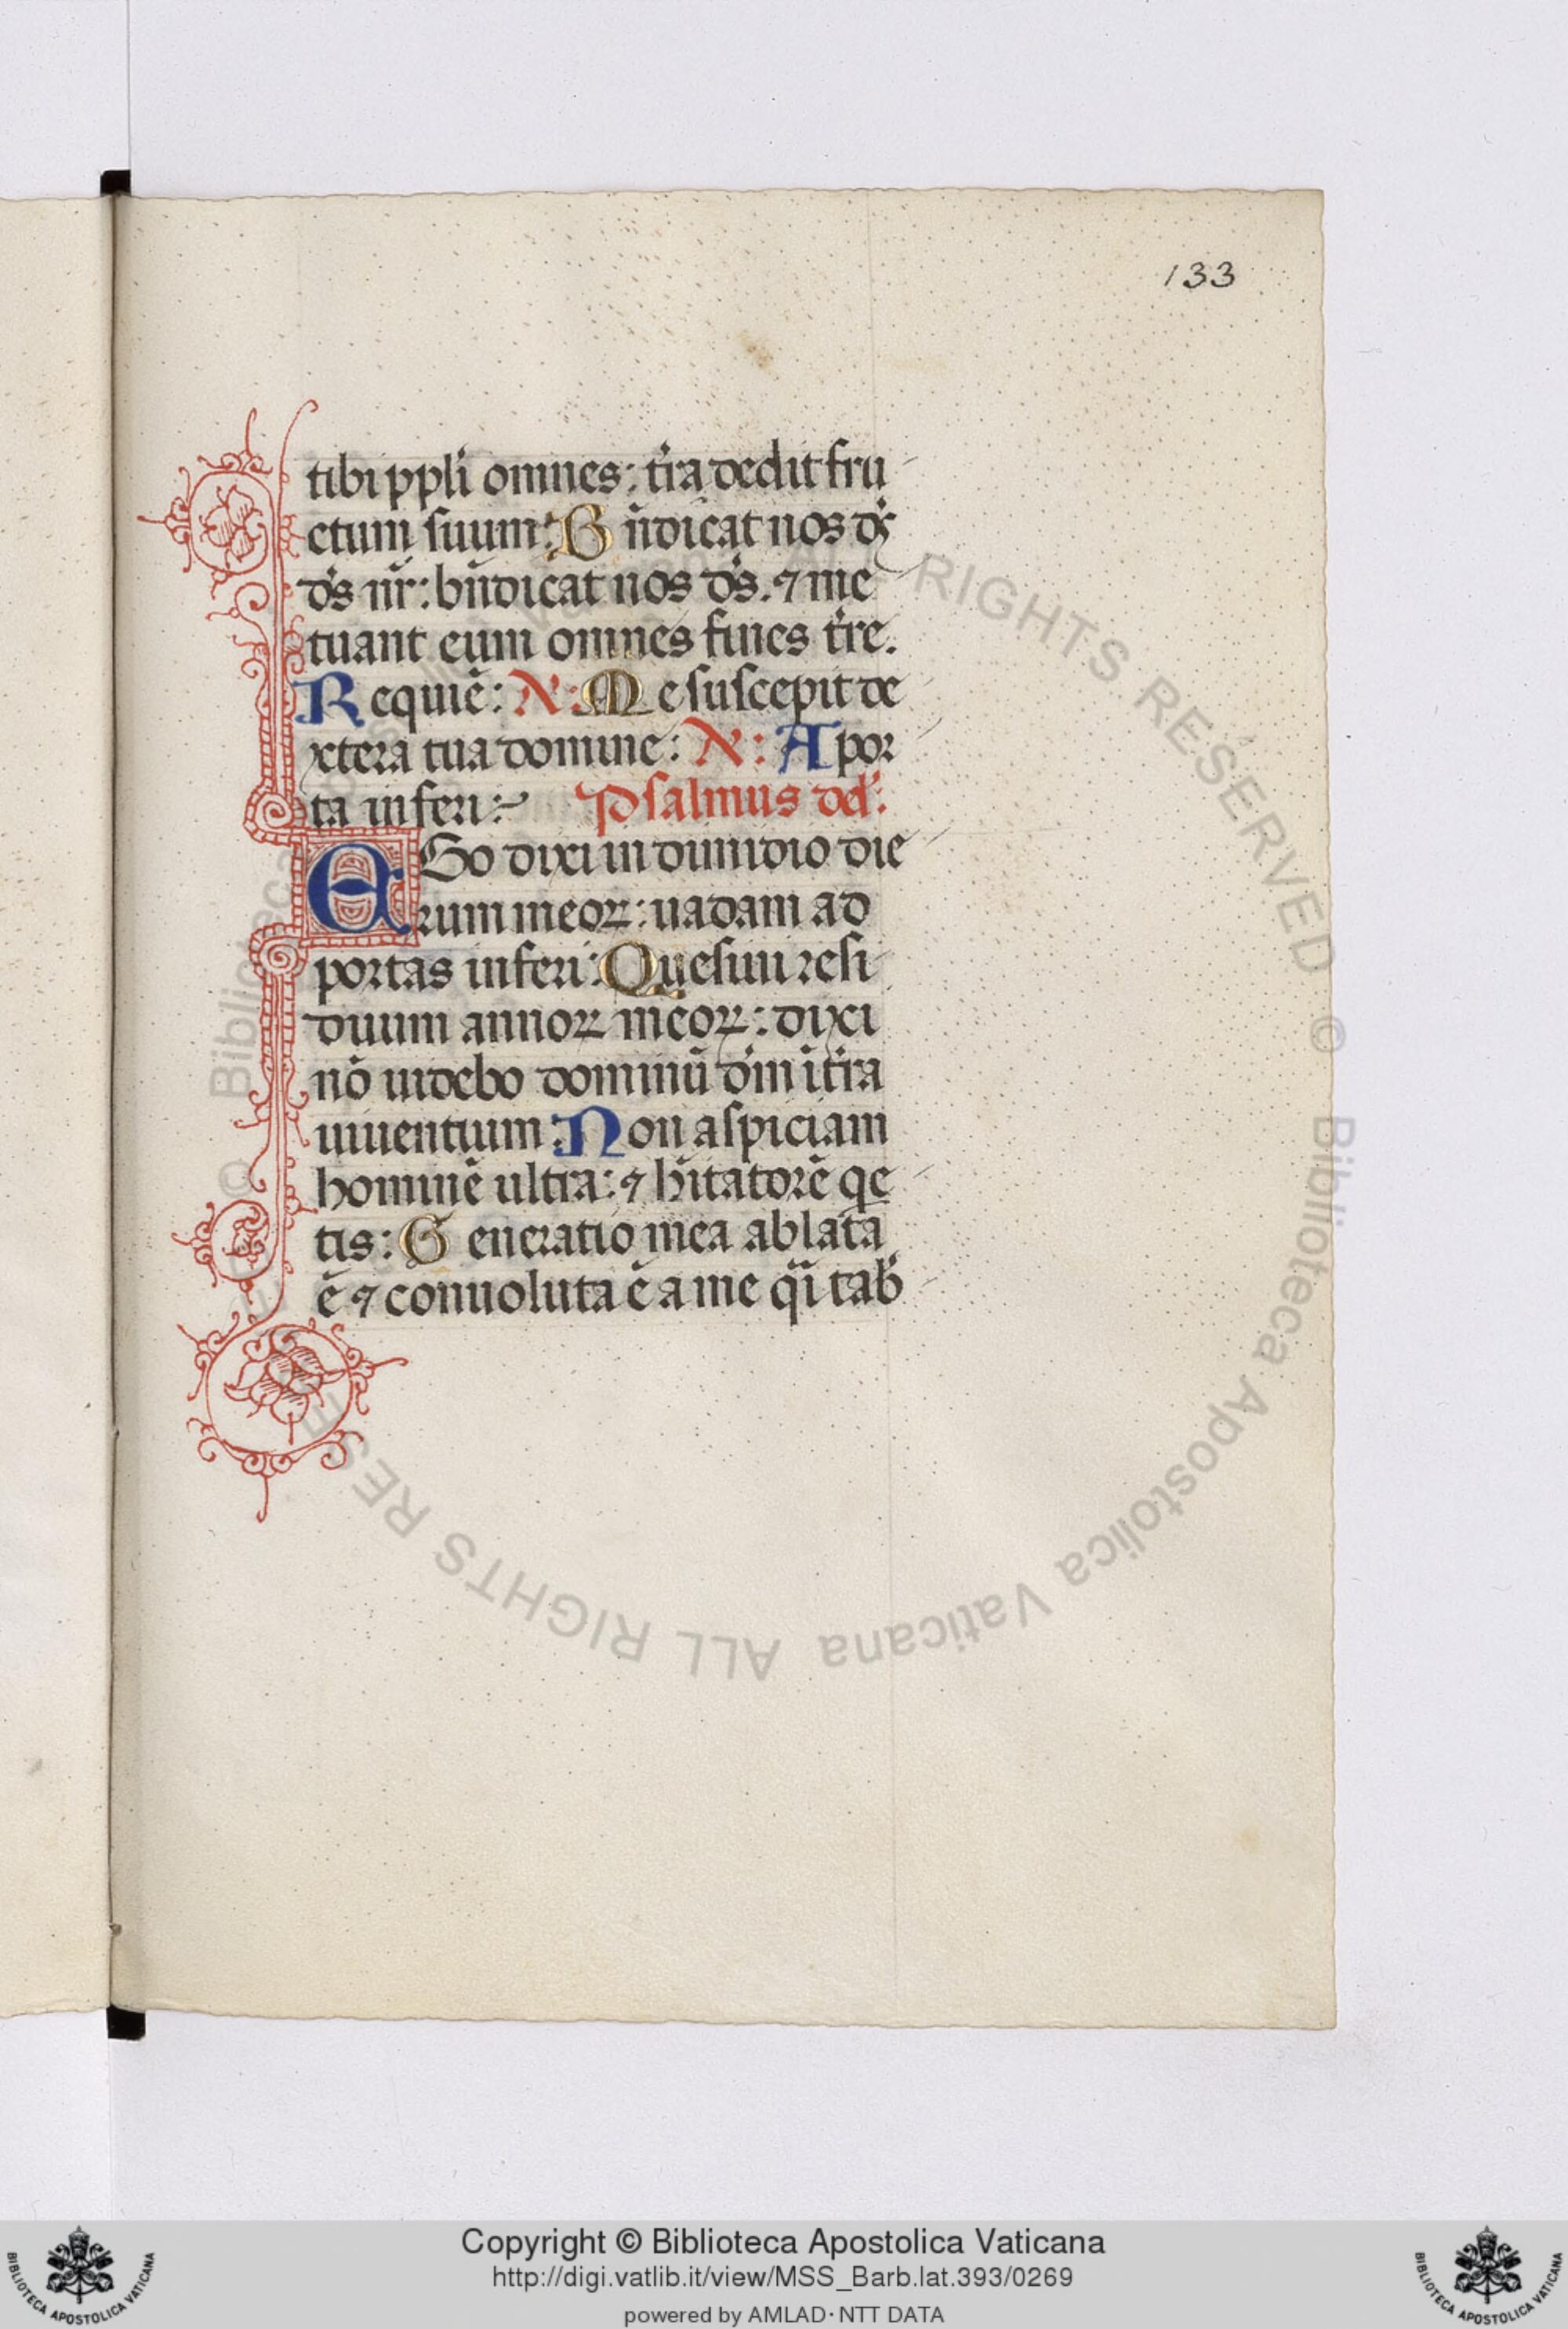 133
tibi ppli omnes: t̃ra dedit fru
ctum suum: B ñdicat nos dꝰs
d̃s nr̃: bñdicat nos d̃s. ⁊ me
tuant eum omnes fines t̃re.
Requiẽ: Aͫ: Me suscepit de
xtera tua domine: Aͫ: A por
ta inferi: Psalmus del̃:
EGo dixi in dimidio die
rum meoꝝ: uadam ad
portas inferi: Quesiui resi
duum annoꝝ meoꝝ: dixi
nõ uidebo dominũ d̃m ĩ t̃ra
uiuentium: Non aspiciam
hominẽ ultra: ⁊ hĩtatorẽ q̃e
tis: Generatio mea ablata
ẽ ⁊ conuoluta ẽ a me q̃i tab̃
© Biblioteca Apostolica Vaticana ALL RIGHTS RESERVED © Biblioteca Apostolica Vaticana ALL RIGHTS RESERVED
Copyright © Biblioteca Apostolica Vaticana
http://digi.vatlib.it/view/MSS_Barb.lat.393/0269
powered by AMLAD·NTT DATA
BIBLIOTECA APOSTOLICA VATICANA
BIBLIOTECA APOSTOLICA VATICANA